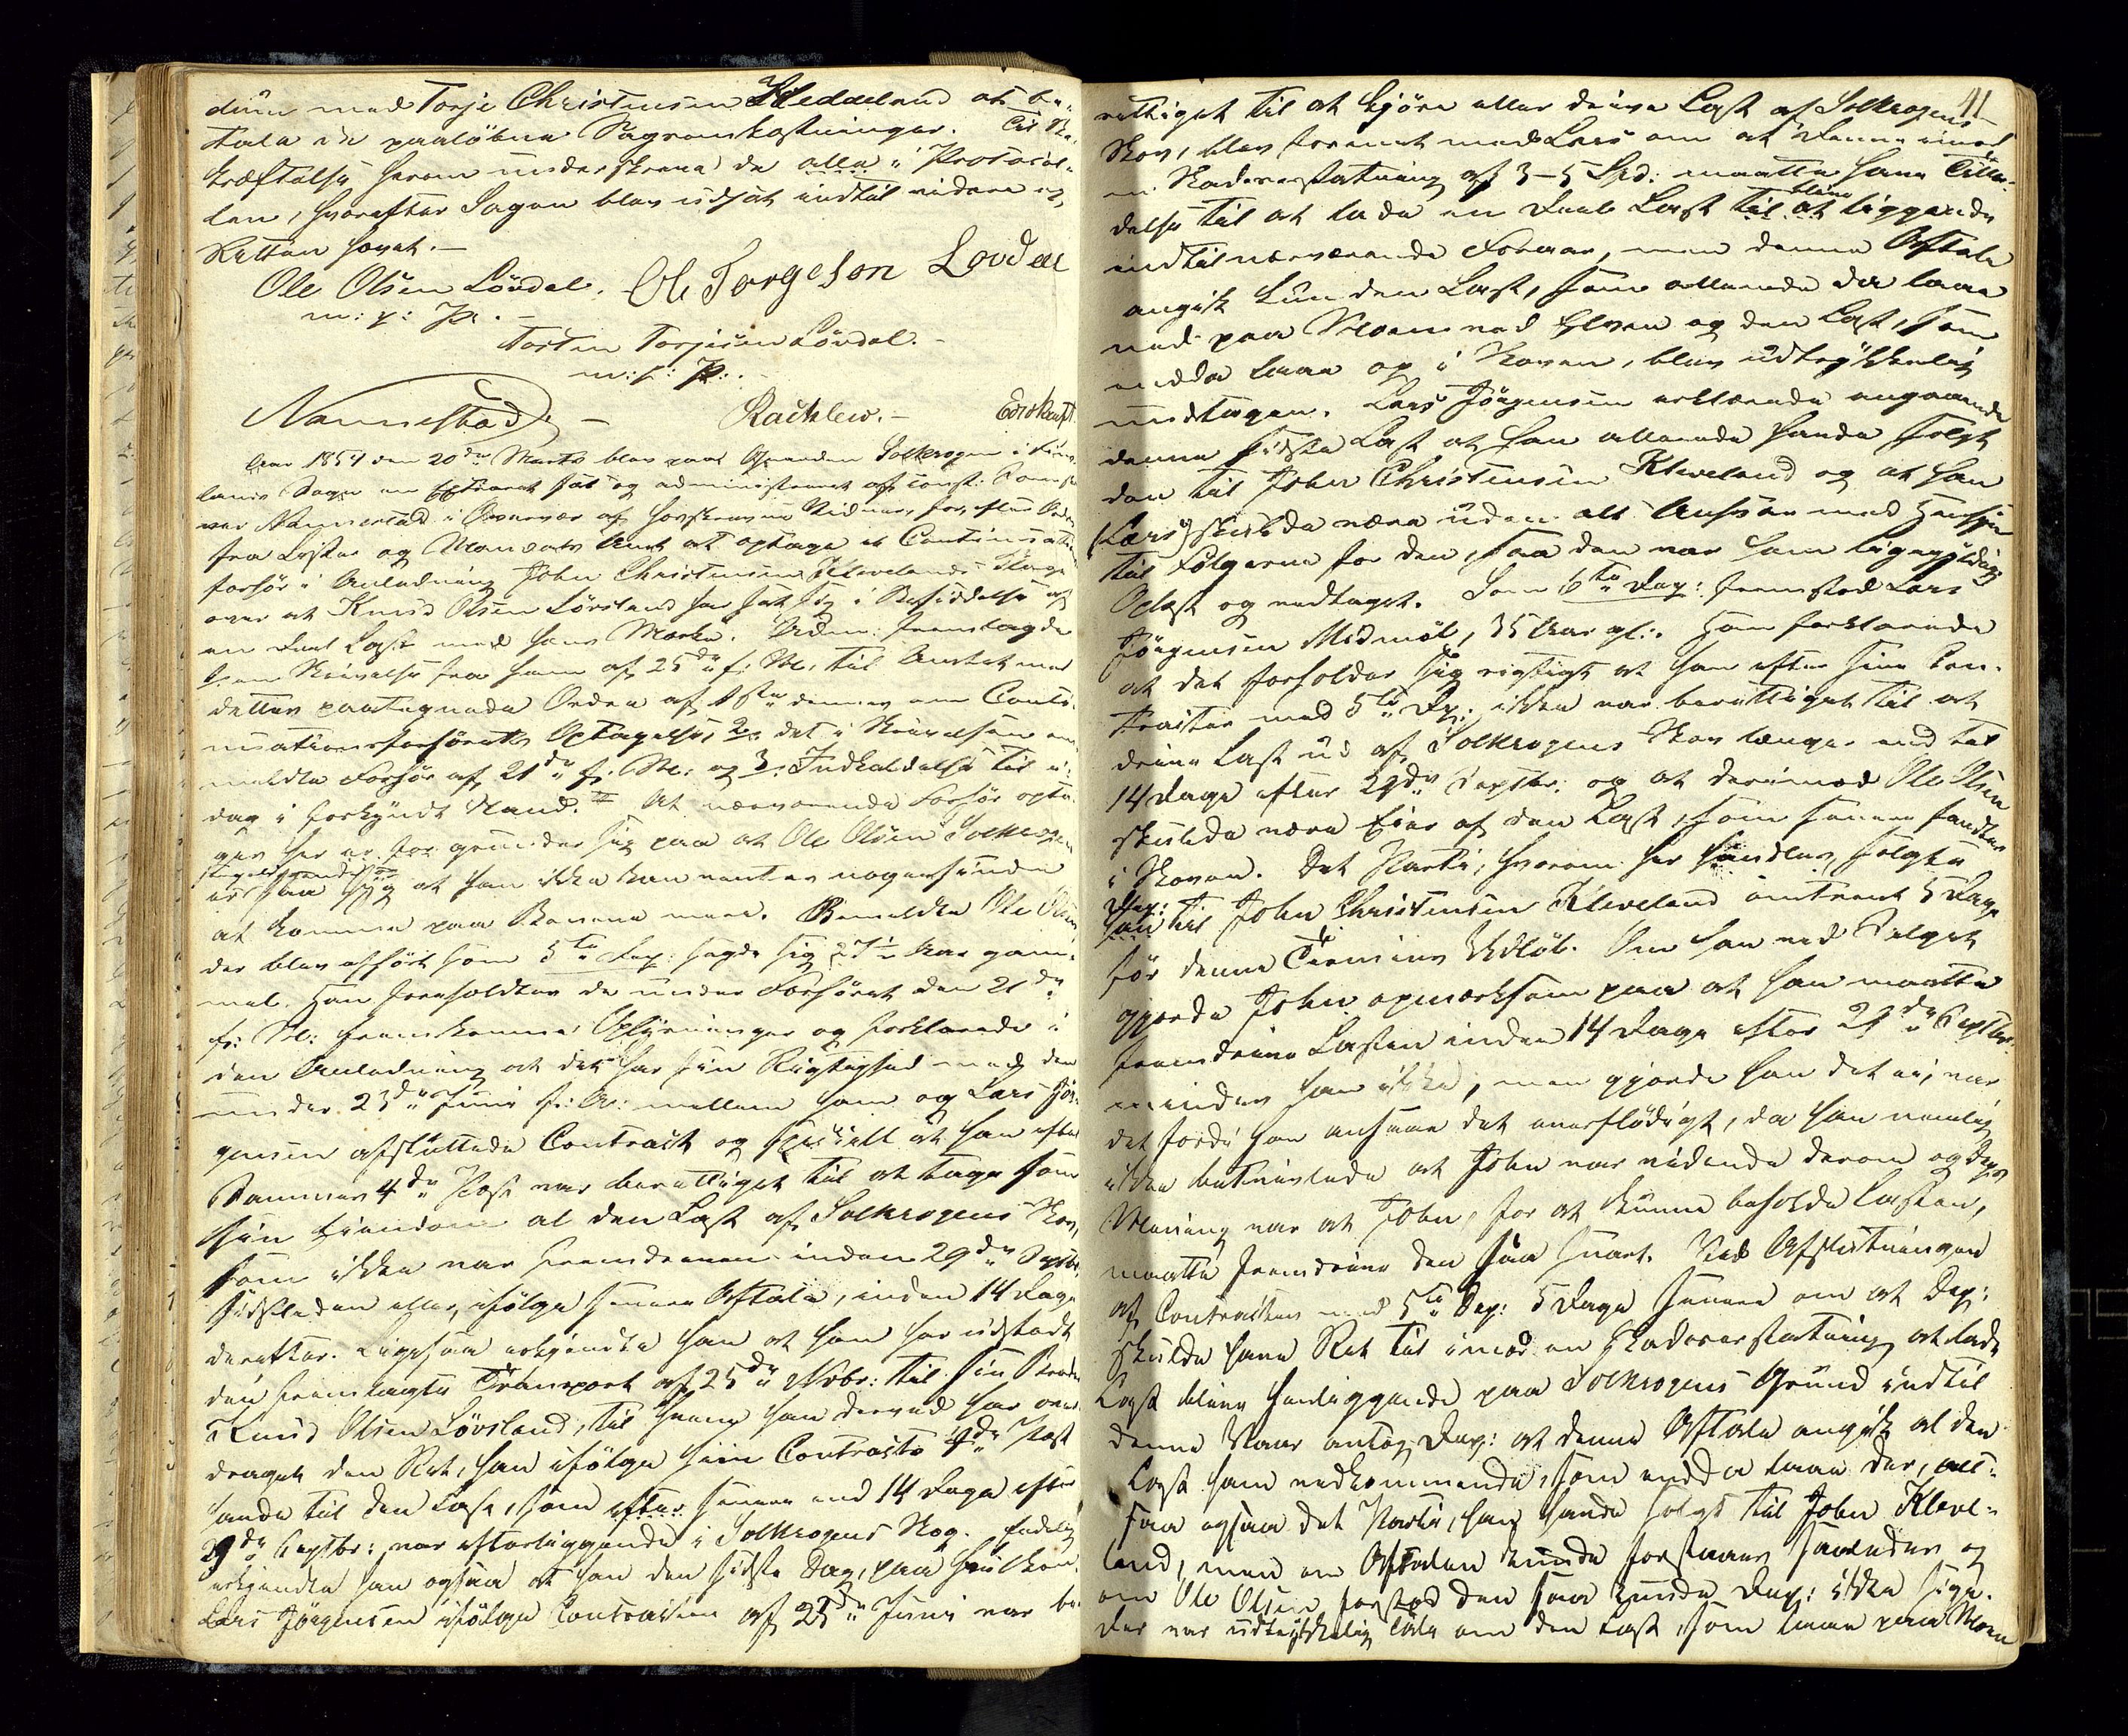 dum med Torje Christensen Heddeland at be-
tale de paaløbne Sagsomkostninger. Til Be-
kræftelse herom underskreve de alle i Protocol-
len, hvorefter Sagen blev udsat indtil videre og
Retten hævet.-
Ole Olsen Løvdal. Ole Torgeson Lovdal
m: p: P.-
Torsten Torjesen Løvdal.-
m: f: P:.
Nannestad, - Rachlew.- Edvskeup
Aar 1854 den 20de Marts blev paa Gaarden Solkrogen i Fins-
lands Sogn en Extraret sat og administreret af const: Sorenskri-
ver Nannestad i Overvær af Lovskrevne Vidner, for efter Ordre
fra Lister og Mandals Amt at optage et Continuations-
forhør i Anledning John Christensen Klevelands Klage
over at Knud Olsen Løvsland har sat sig i Besiddelse af
en Deel Last med hans Mærke. Adm: fremlagde
1. en Skrivelse fra ham af 25de f: M: til Amtet med
dettes paategnede Ordre af 1ste dennes om Conti-
nuationsforhørets Optagelse, 2, det i Skrivelsen om-
meldte Forhør af 21de f: M: og 3. Indkaldelse til i-
dag i forkyndt Stand. At nærværende Forhør opta-
ges her er for grunder sig paa at Ole Olsen Solkrogen
er saa syg at han ikke kan ventes nogensinde
at komme paa Benene meer. Bemeldte Ole Olsen
der blev afhørt som 5te Dep: sagde sig 27½ Aar gam-
mel. Han foreholdtes de under Forhøret den 21de
f: M: fremkomne Oplysninger og forklarede i
den Anledning at det har sin Rigtighed med den
under 23de Juni f: A: mellem ham og Lars Jør-
gensen afsluttede Contract og specielt at han efter
Sammes 4de Post var berettiget til at tage som
sin Eiendom al den Last af Solkrogens Skov,
som ikke var fremdreven inden 29de Septbr.
sidstleden eller, ifølge senere Aftale, inden 14 Dage
derefter. Ligesaa erkjendte han at han har udstedt
den fremlagte Transport af 25de Novbr: til sin Broder
Knud Olsen Løvsland, til hvem han derved har over-
draget den Ret, han ifølge sin Contracts 4de Post
havde til den Last, som efter senere end 14 Dage efter
29de Septbr: var efterliggende i Solkrogens Skog. Endelig
erkjendte han ogsaa at han den sidste Dag, paa hvilken
Lars Jørgensen ifølge Contracten af 23de Juni var be-
41
rettiget til at kjøre eller drive Last af Solkrogens
Skov, blev forenet med Lars om at denne imod
en Skadeserstatning af 3-5 Spd: maatte have Tilla-
delse til at lade en Deel Last til at blive liggende
indtil nærværende Foraar, men denne Aftale
angik kun den Last, som allerede da laae
ned paa Moen ved Elven og den Last, som
endda laae op i Skoven, blev udtrykkelig
undtagen. Lars Jørgensen erklærede angaaende
denne sidste Last at han allerede havde solgt
den til John Christensen Kleveland og at han
(Lars) skulde være uden alt Ansvar med Hensyn
til Følgerne for den, saa den var ham ligegyldig
Oplæst og vedtaget. Som 6te Dep: fremstod Lars
Jørgensen Midmøl, 35 Aar gl:. Han forklarede
at det forholder sig rigtigt at han efter sin Con-
tract med 5te Dep: ikke var berettiget til at
drive Last ud af Solkrogens Skov længer end til
14 Dage efter 29de Septbr: og at derimod Ole Olsen
skulde være Eier af den Last, som senere fandtes
i Skoven. Det Parti, hvorom her handles, solgte
Dep: han til John Christensen Kleveland omtrent 5 Dage
før denne Termins Udløb. Om han ved Salget
gjorde John opmærksom paa at han maatte
fremdrive Lasten inden 14 Dage efter 29de Septbr:
mindes han ikke, men gjorde han det ei, var
det fordi han ansaae det overflødigt, da han nemlig
ikke betvivlede at John var vidende derom og Deps
Mening var at John, for at kunne beholde Lasten,
maatte fremdrive den saa snart. Ved Afslutningen
af Contracten med 5te Dep: 5 Dage senere om at Dep:
skulde have Ret til imod en Skadeserstatning at lade
Last blive henliggende paa Solkrogens Grund indtil
denne Vaar antog Dep: at denne Aftale angik al den
Last ham vedkommende, som endda laae der, alt-
saa ogsaa det Parti, han havde solgt til John Kleve-
land, men om Aftalen kunde forstaaes saaledes og
om Ole Olsen forstod den saa kunde Dep: ikke sige.
Der var udtrykkelig Tale om den Last, som laae paa Moen